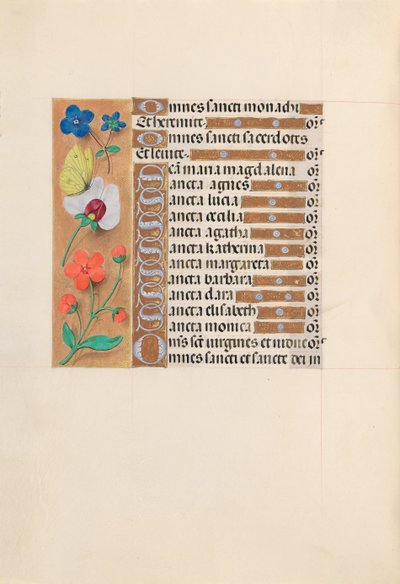 Omnes sancti monachi
Et heremite. or̄
Omnes sancti sacerdotes
Et leuite. or̄
Scā maria magdalena or̄
Sancta agnes or̄
Sancta lucia or̄
Sancta cecilia or̄
Sancta agatha or̄
Sancta katherina or̄
Sancta margareta or̄
Sancta barbara or̄
Sancta clara or̄
Sancta elisabeth or̄
Sancta monica or̄
Om̄s scē virgines et vidue or̄
Omnes sancti et sancte dei in